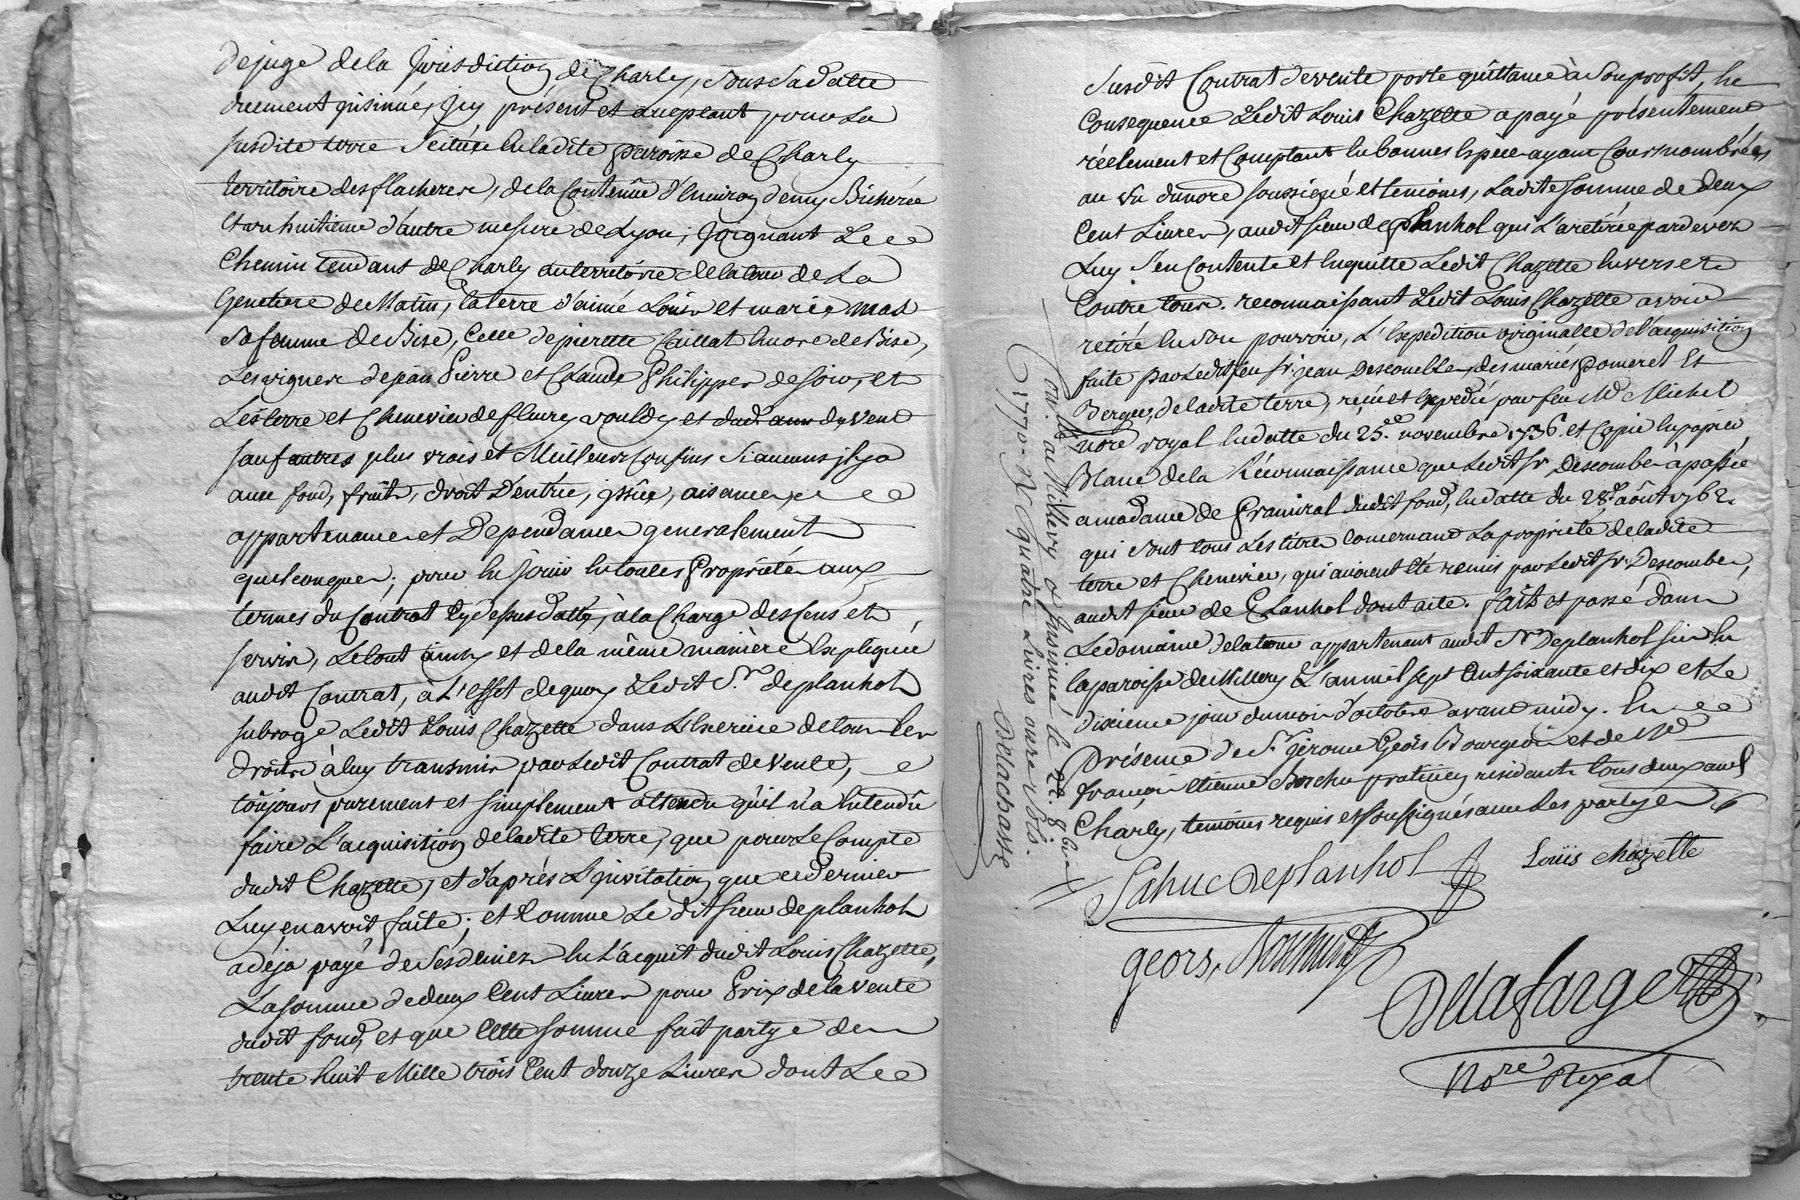 de juge de la Jurisdiction de Charly, sous sa datte
duement insinué, Icy présent et acceptant pour la
susdite terre scituée en ladite paroisse de Charly
territoire des flacheres, de la Contenûe d'environ demy Bicherée
et un huitieme d'autre mesure de Lyon; joignant Le
Chemin tendant de Charly au territoire de la tour de La
Genetiere de Matin, la terre d'aimé Louis et marie mas
sa femme de Bise, Celle de pierette Caillat encore de Bise,
Les vignes de jean Pierre et Claude Philippes de soir, et
Les terre et Chenevier de fleury vouldy du Vent
sauf autres plus vrais et Meilleurs Confins si aucuns jl y a
avec fond, fruits, droit D'entrée, jssûe, aisances,
appartenances et Dependances generalement
quelconques; pour en joüir en toutes Propriété aux
termes du Contrat cy dessus datté, à la Charge des Cens et
servis, Le tout ainsy et de la même manière expliquée
audit Contrat, à L'effet de quoy Ledit Sr. deplanhol
subroge Ledit Louis Chazette dans L'exercice de tous les
droits à luy transmis par Ledit Contrat de vente,
toujours purement et simplement attendu qu'il n'a entendû
faire L'acquisition de ladite terre, que pour Le Compte
dudit Chazette, et d'après L'jnvitation que ce Dernier
Luy en avoit faite; et Comme Le dit sieur deplanhol
a déja payé de ses deniers en l'acquit dudit Louis Chazette,
La somme de deux Cent Livres pour Prix de la vente
dudit fond, et que Cette somme fait partye des
trente huit Mille trois Cent douze Livres dont Le
susdit Contrat de vente porte quittance à son profit, En
Consequence Ledit Louis Chazette a payé présentement
réelement et Comptant en bonnes espece ayant Cours nombrées
au vû du nore soussigné et temoins, Ladite somme de deux
Cent Livres, audit sieur deplanhol qui L'a retirée pardevers
Luy s'en Contente et en quitte Ledit Chazette envers et
Contre tous. reconnaissant Ledit Louis Chazette avoir
retiré en son pouvoir, L'expedition originalle de L'acquisition
faite par Ledit feu sr. jean Descombes, des mariés Pomeret Et
Berger, de ladite terre, reçu et expedié par feu Me Michel
nore royal en datte du 25.e novembre 1736. et Copie en papier
Blanc de la Réconnaissance que Ledit Sr Descombes à passée
a madame de Framiral dudit fond, en datte du 28e. août 1762
qui sont tous Les titres Concernant La proprieté de ladite
terre et Chenevier, qui avoient été remis par Ledit Sr. Descombes,
audit sieur de Planhol dont acte. fait et passé dans
Le domaine de la tour appartenant audit Sr Deplanhol sis en
la paroisse de Millery L'an mil sept Cent soixante et dix et Le
dixieme jour du mois d'octobre avant midy. En
Présence de Sr jérome Geors Bourgeois et de Me
françois etienne Bochu praticien residents tous deux audit
Charly, temoins requis et soussignés avec Les partyes
Loüis chazette
Sahuc Deplanhol
geors,
Delafarge
Nore Royal
Con.lé à Millery & Insinué le 22. 8bre
1770. R quatre Livres onze sols.
Delachass